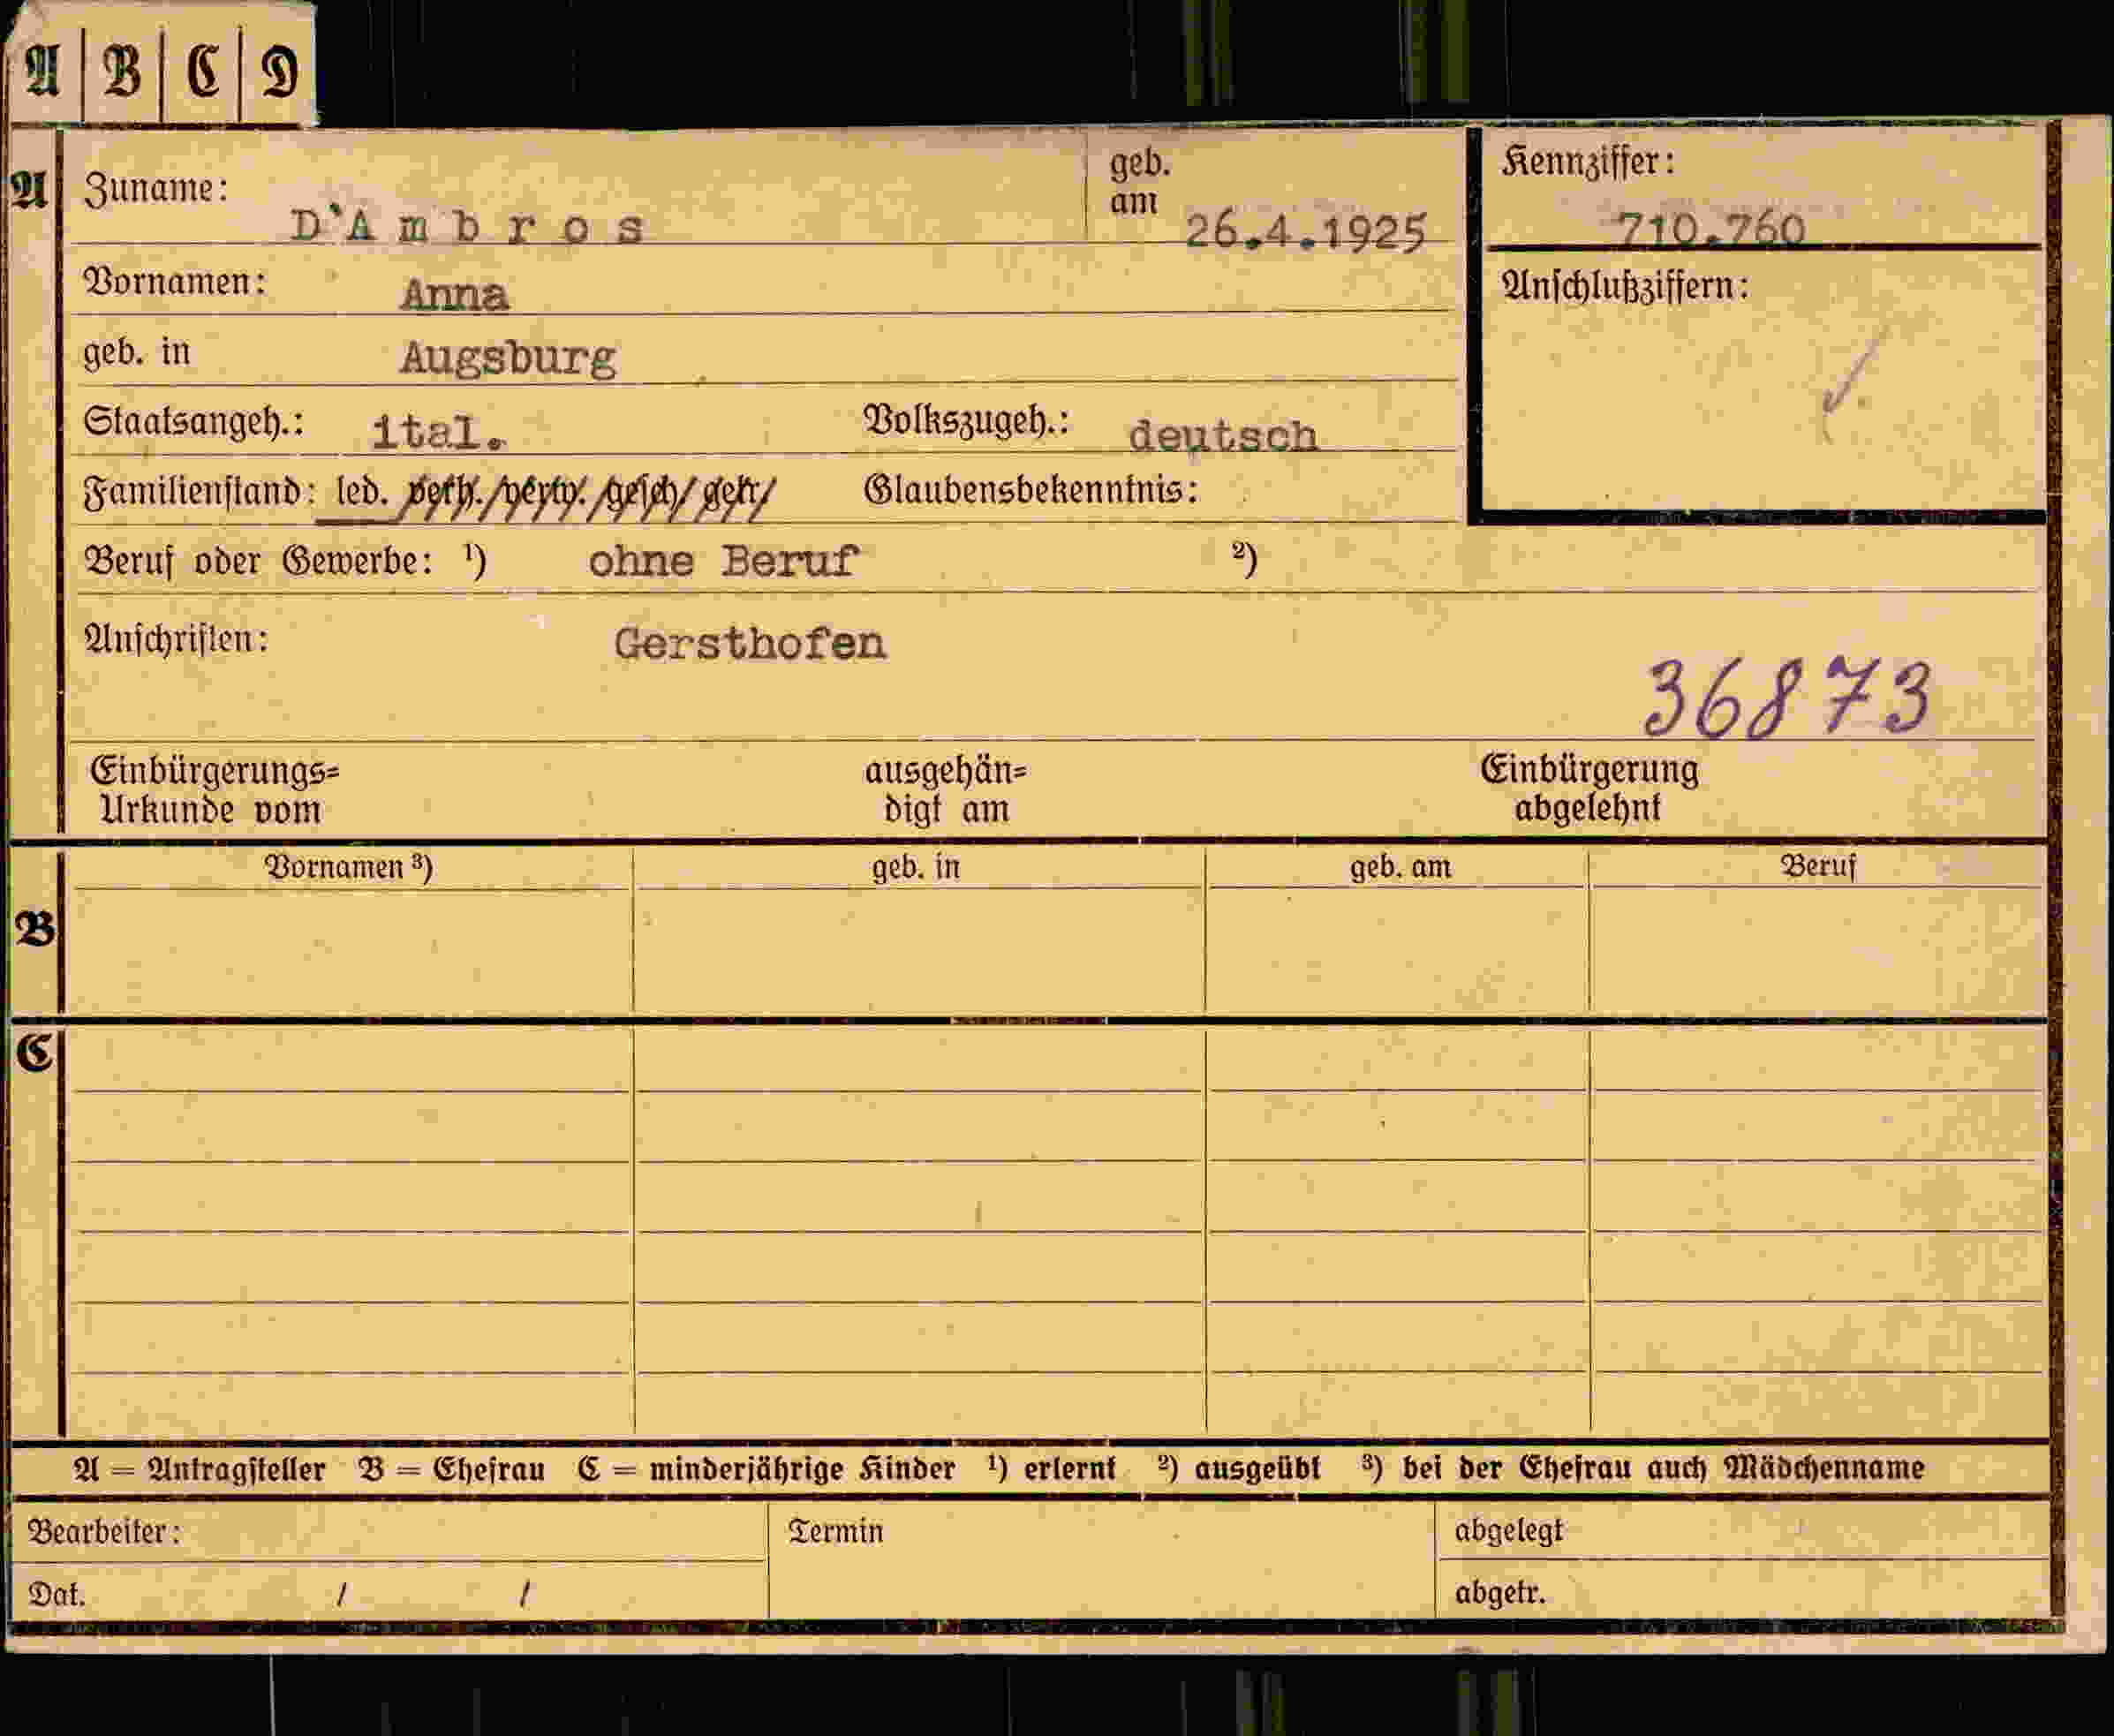 A B C D
A Zuname: D'Ambros geb. am 26.4.1925 Kennziffer: 710.760
Vornamen: Anna Anschlußziffern:
geb. in Augsburg
Staatsangeh.: ital. Volkszugeh.: deutsch
Familienstand: led. verh./verw./gesch/getr/ Glaubensbekenntnis:
Beruf oder Gewerbe: ¹) ohne Beruf ²)
Anschriften: Gersthofen
36873
Einbürgerungs= ausgehän= Einbürgerung
Urkunde vom digt am abgelehnt
Vornamen ³) geb. in geb. am Beruf
B
C
A = Antragsteller B = Ehefrau C = minderjährige Kinder ¹) erlernt ²) ausgeübt ³) bei der Ehefrau auch Mädchenname
Bearbeiter: Termin abgelegt
Dat. / / abgetr.